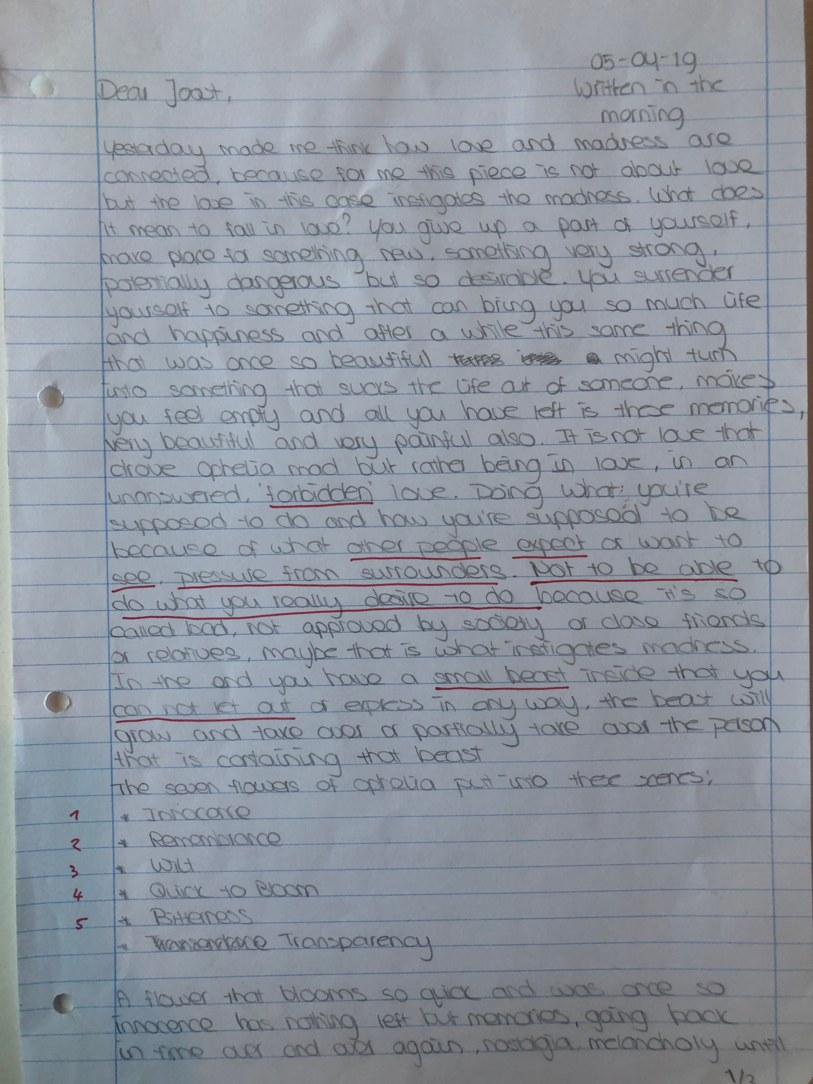 05-04-19
Dear Joost,
Written in the
morning
Yesterday made me think how love and madness are
connected, because for me this piece is not about love
but the love in this case instigates the madness. What does
it mean to fall in love? You give up a part of yourself,
make place for something new, something very strong,
potentially dangerous but so desirable. You surrender
yourself to something that can bring you so much life
and happiness and after a while this same thing
that was once so beautiful might turn
into something that sucks the life out of someone, makes
you feel empty and all you have left is these memories,
very beautiful and very painful also. It is not love that
drove ophelia mad but rather being in love, in an
unanswered, 'forbidden' love. Doing what you're
supposed to do and how you're supposed to be
because of what other people expect or want to
see, pressure from surrounders. Not to be able to
do what you really desire to do because it's so
called bad, not approved by society or close friends
or relatives, maybe that is what instigates madness.
In the end you have a small beast inside that you
can not let out or express in any way, the beast will
grow and take over or partially take over the person
that is containing that beast
The seven flowers of ophelia put into these scenes;
1 * Innocence
2 * Remembrance
3 * Wilt
4 * Quick to Bloom
5 * Bitterness
- Transparency
A flower that blooms so quick and was once so
innocence has nothing left but memories, going back
in time over and over again, nostalgia, melancholy until